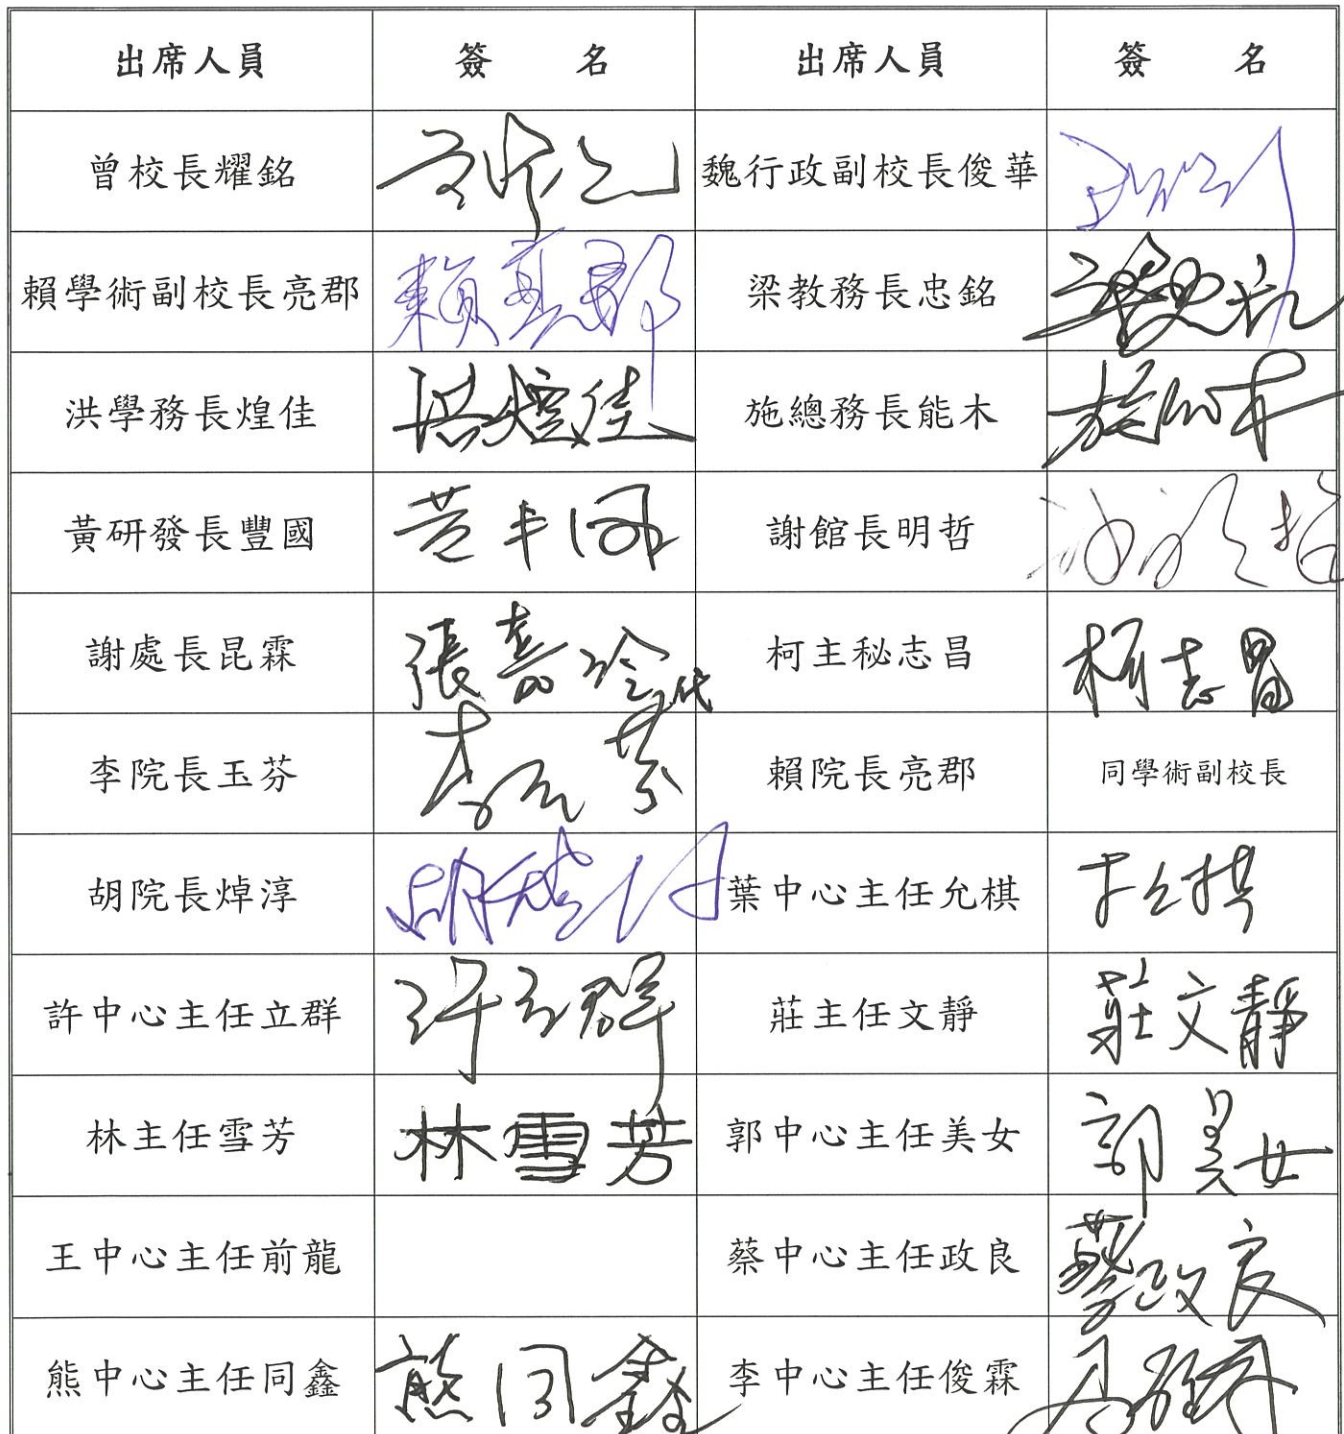 出席人員 簽 名 出席人員 簽 名
曾校長耀銘 魏行政副校長俊華
賴學術副校長亮郡 賴亮郡 梁教務長忠銘
洪學務長煌佳 洪煌佳 施總務長能木 施能木
黃研發長豐國 謝館長明哲
謝處長昆霖 張嘉玲代 柯主秘志昌 柯志昌
李院長玉芬 李玉芬 賴院長亮郡 同學術副校長
胡院長焯淳 葉中心主任允棋
許中心主任立群 许立群 莊主任文靜 莊文靜
林主任雪芳 林雪芳 郭中心主任美女 郭美女
王中心主任前龍 蔡中心主任政良 蔡政良
熊中心主任同鑫 熊同鑫 李中心主任俊霖